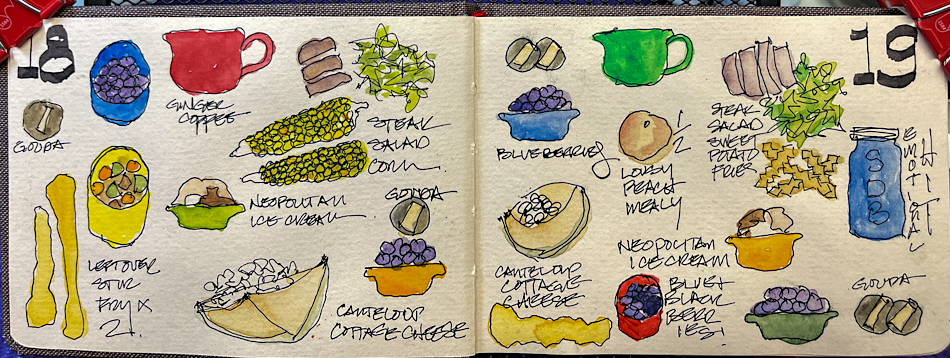 18
GOUDA
GINGER
COFFEE
STEAK
SALAD
CORN
NEOPOLITAN
ICE CREAM
GOUDA
LEFTOVER
STIR
FRY X
2!
CANTELOUP
COTTAGE CHEESE
19
BLUEBERRIES
1/2
LOUSY
PEACH
MEALY
STEAK
SALAD
SWEET
POTATO
FRIES
SDB
EMOTIONAL
CANTELOUP
COTTAGE
CHEESE
NEOPOLITAN
ICE CREAM
BLUE+
BLACK
BERR
IES!
GOUDA